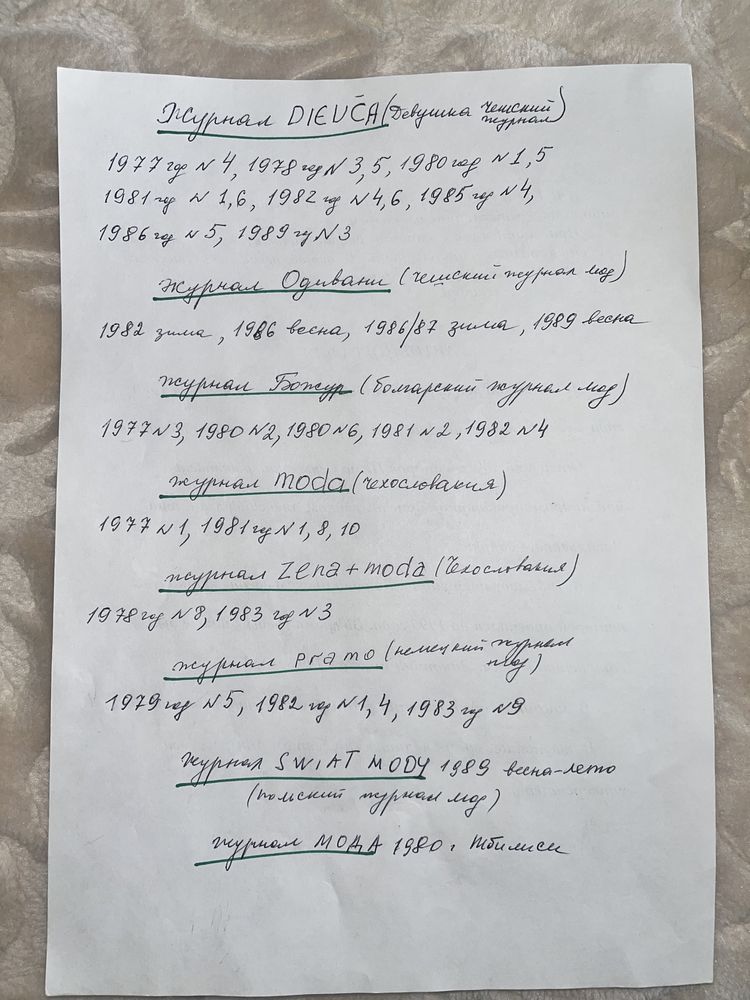 Журнал DIEVČA (Девушка чешский журнал)
1977 год № 4, 1978 год № 3, 5, 1980 год № 1, 5
1981 год № 1,6, 1982 год № 4,6, 1985 год № 4,
1986 год № 5, 1989 год № 3
журнал Одивани (чешский журнал мод)
1982 зима, 1986 весна, 1986/87 зима, 1989 весна
журнал Божур (болгарский журнал мод)
1977 № 3, 1980 № 2, 1980 № 6, 1981 № 2, 1982 № 4
журнал moda (Чехословакия)
1977 № 1, 1981 год № 1, 8, 10
журнал Zena + moda (Чехословакия)
1978 год № 8, 1983 год № 3
журнал pramo (немецкий журнал мод)
1979 год № 5, 1982 год № 1, 4, 1983 год № 9
журнал SWIAT MODY 1989 весна-лето
(польский журнал мод)
журнал МОДА 1980 г Тбилиси